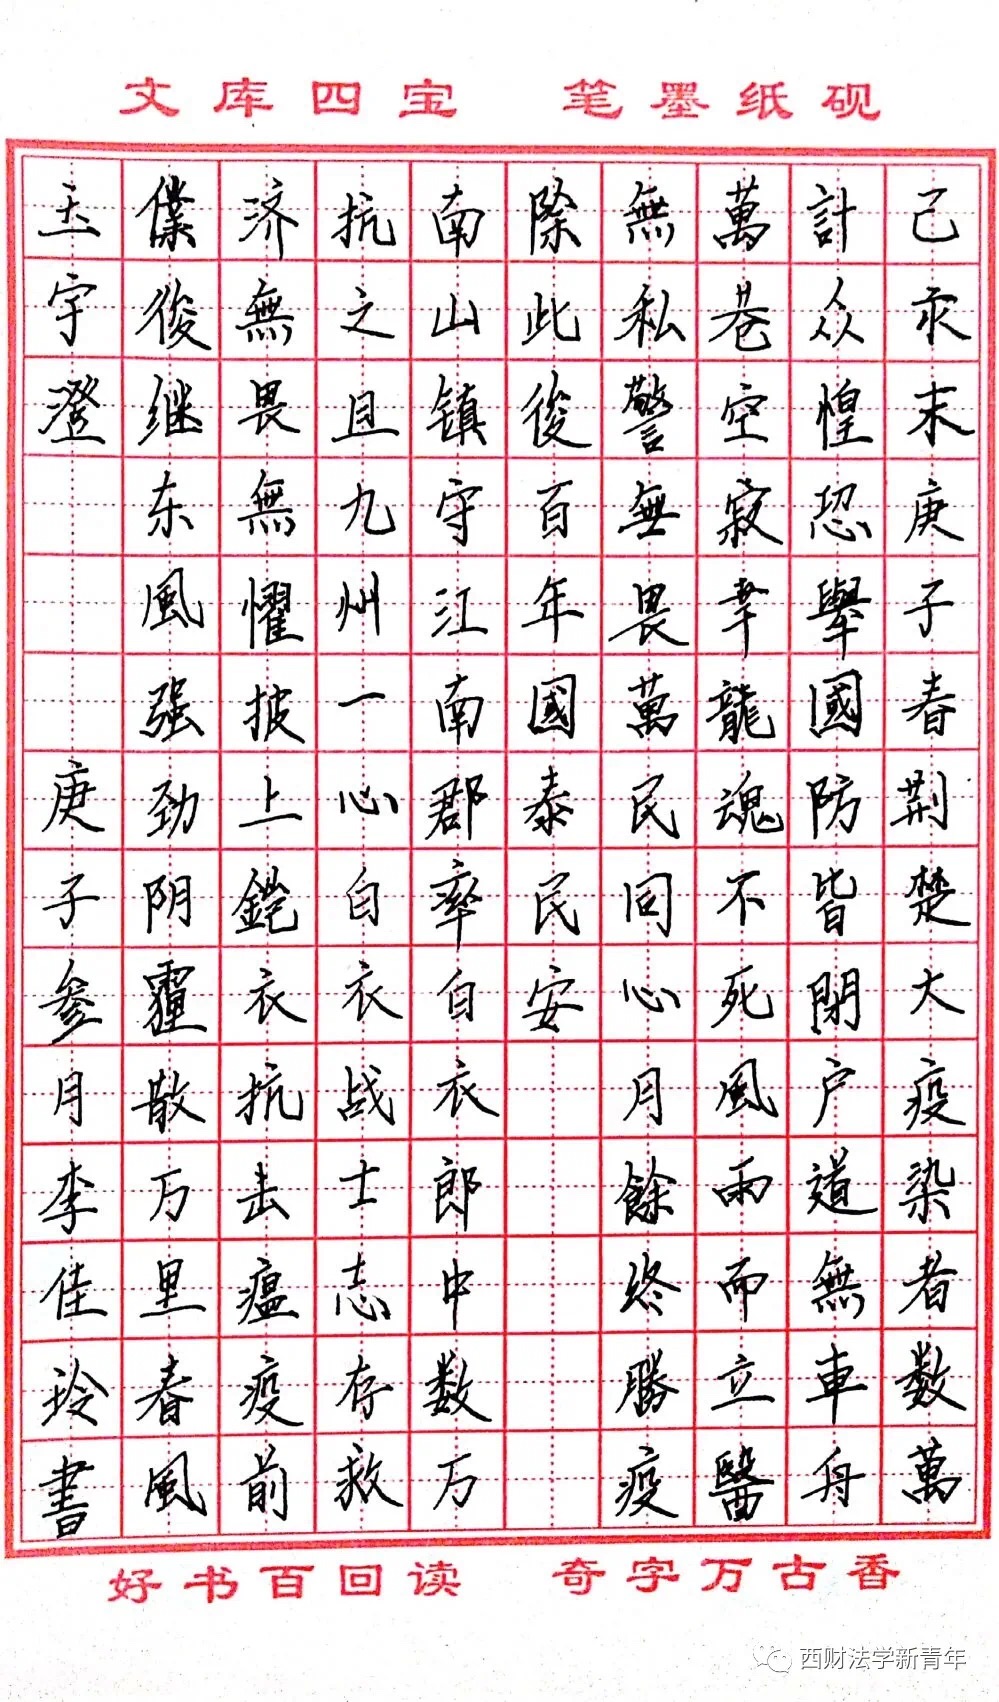 文库四宝 笔墨纸砚
己汞末庚子春荆楚大疫染者数萬
計众惶恐舉國防皆閉户道無車舟
萬巷空寂幸龍魂不死風雨而立醫
無私警無畏萬民同心月餘终勝疫
除此後百年國泰民安
南山镇守江南郡率白衣郎中数万
抗之且九州一心白衣战士志存救
济無畏無懼披上铠衣抗击瘟疫前
僕後继东風强劲阴霾散万里春風
玉宇澄
庚子参月李佳玲書
好书百回读 奇字万古香
西财法学新青年